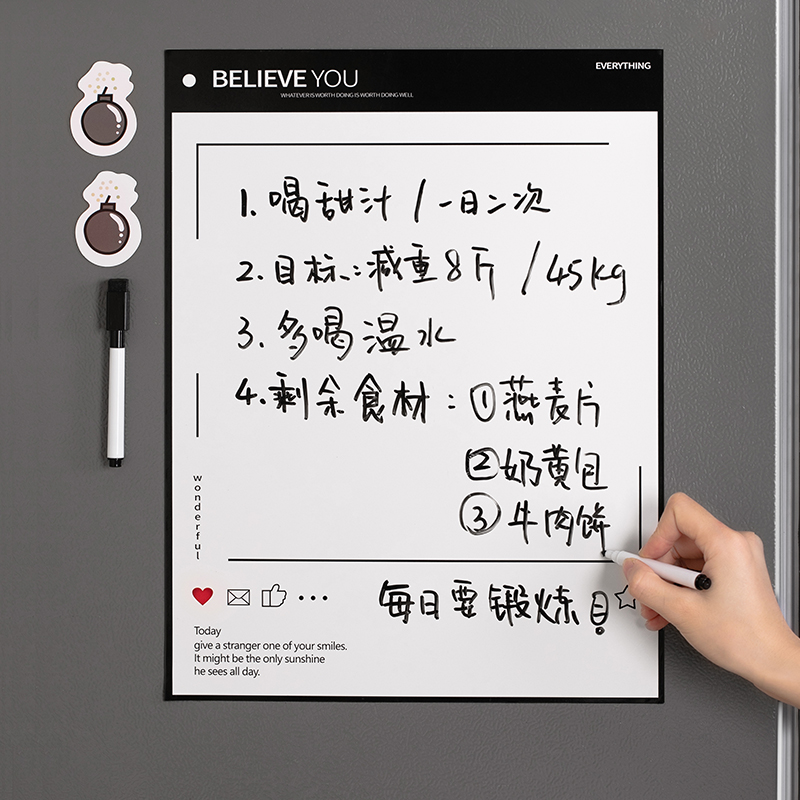 BELIEVE YOU
EVERYTHING
WHATEVER IS WORTH DOING IS WORTH DOING WELL
1. 喝甜汁 / 一日二次
2. 目标:减重8斤 / 45kg
3. 多喝温水
4. 剩余食材:①燕麦片
②奶黄包
③牛肉饼
wonderful
每日要锻炼!
Today
give a stranger one of your smiles.
It might be the only sunshine
he sees all day.